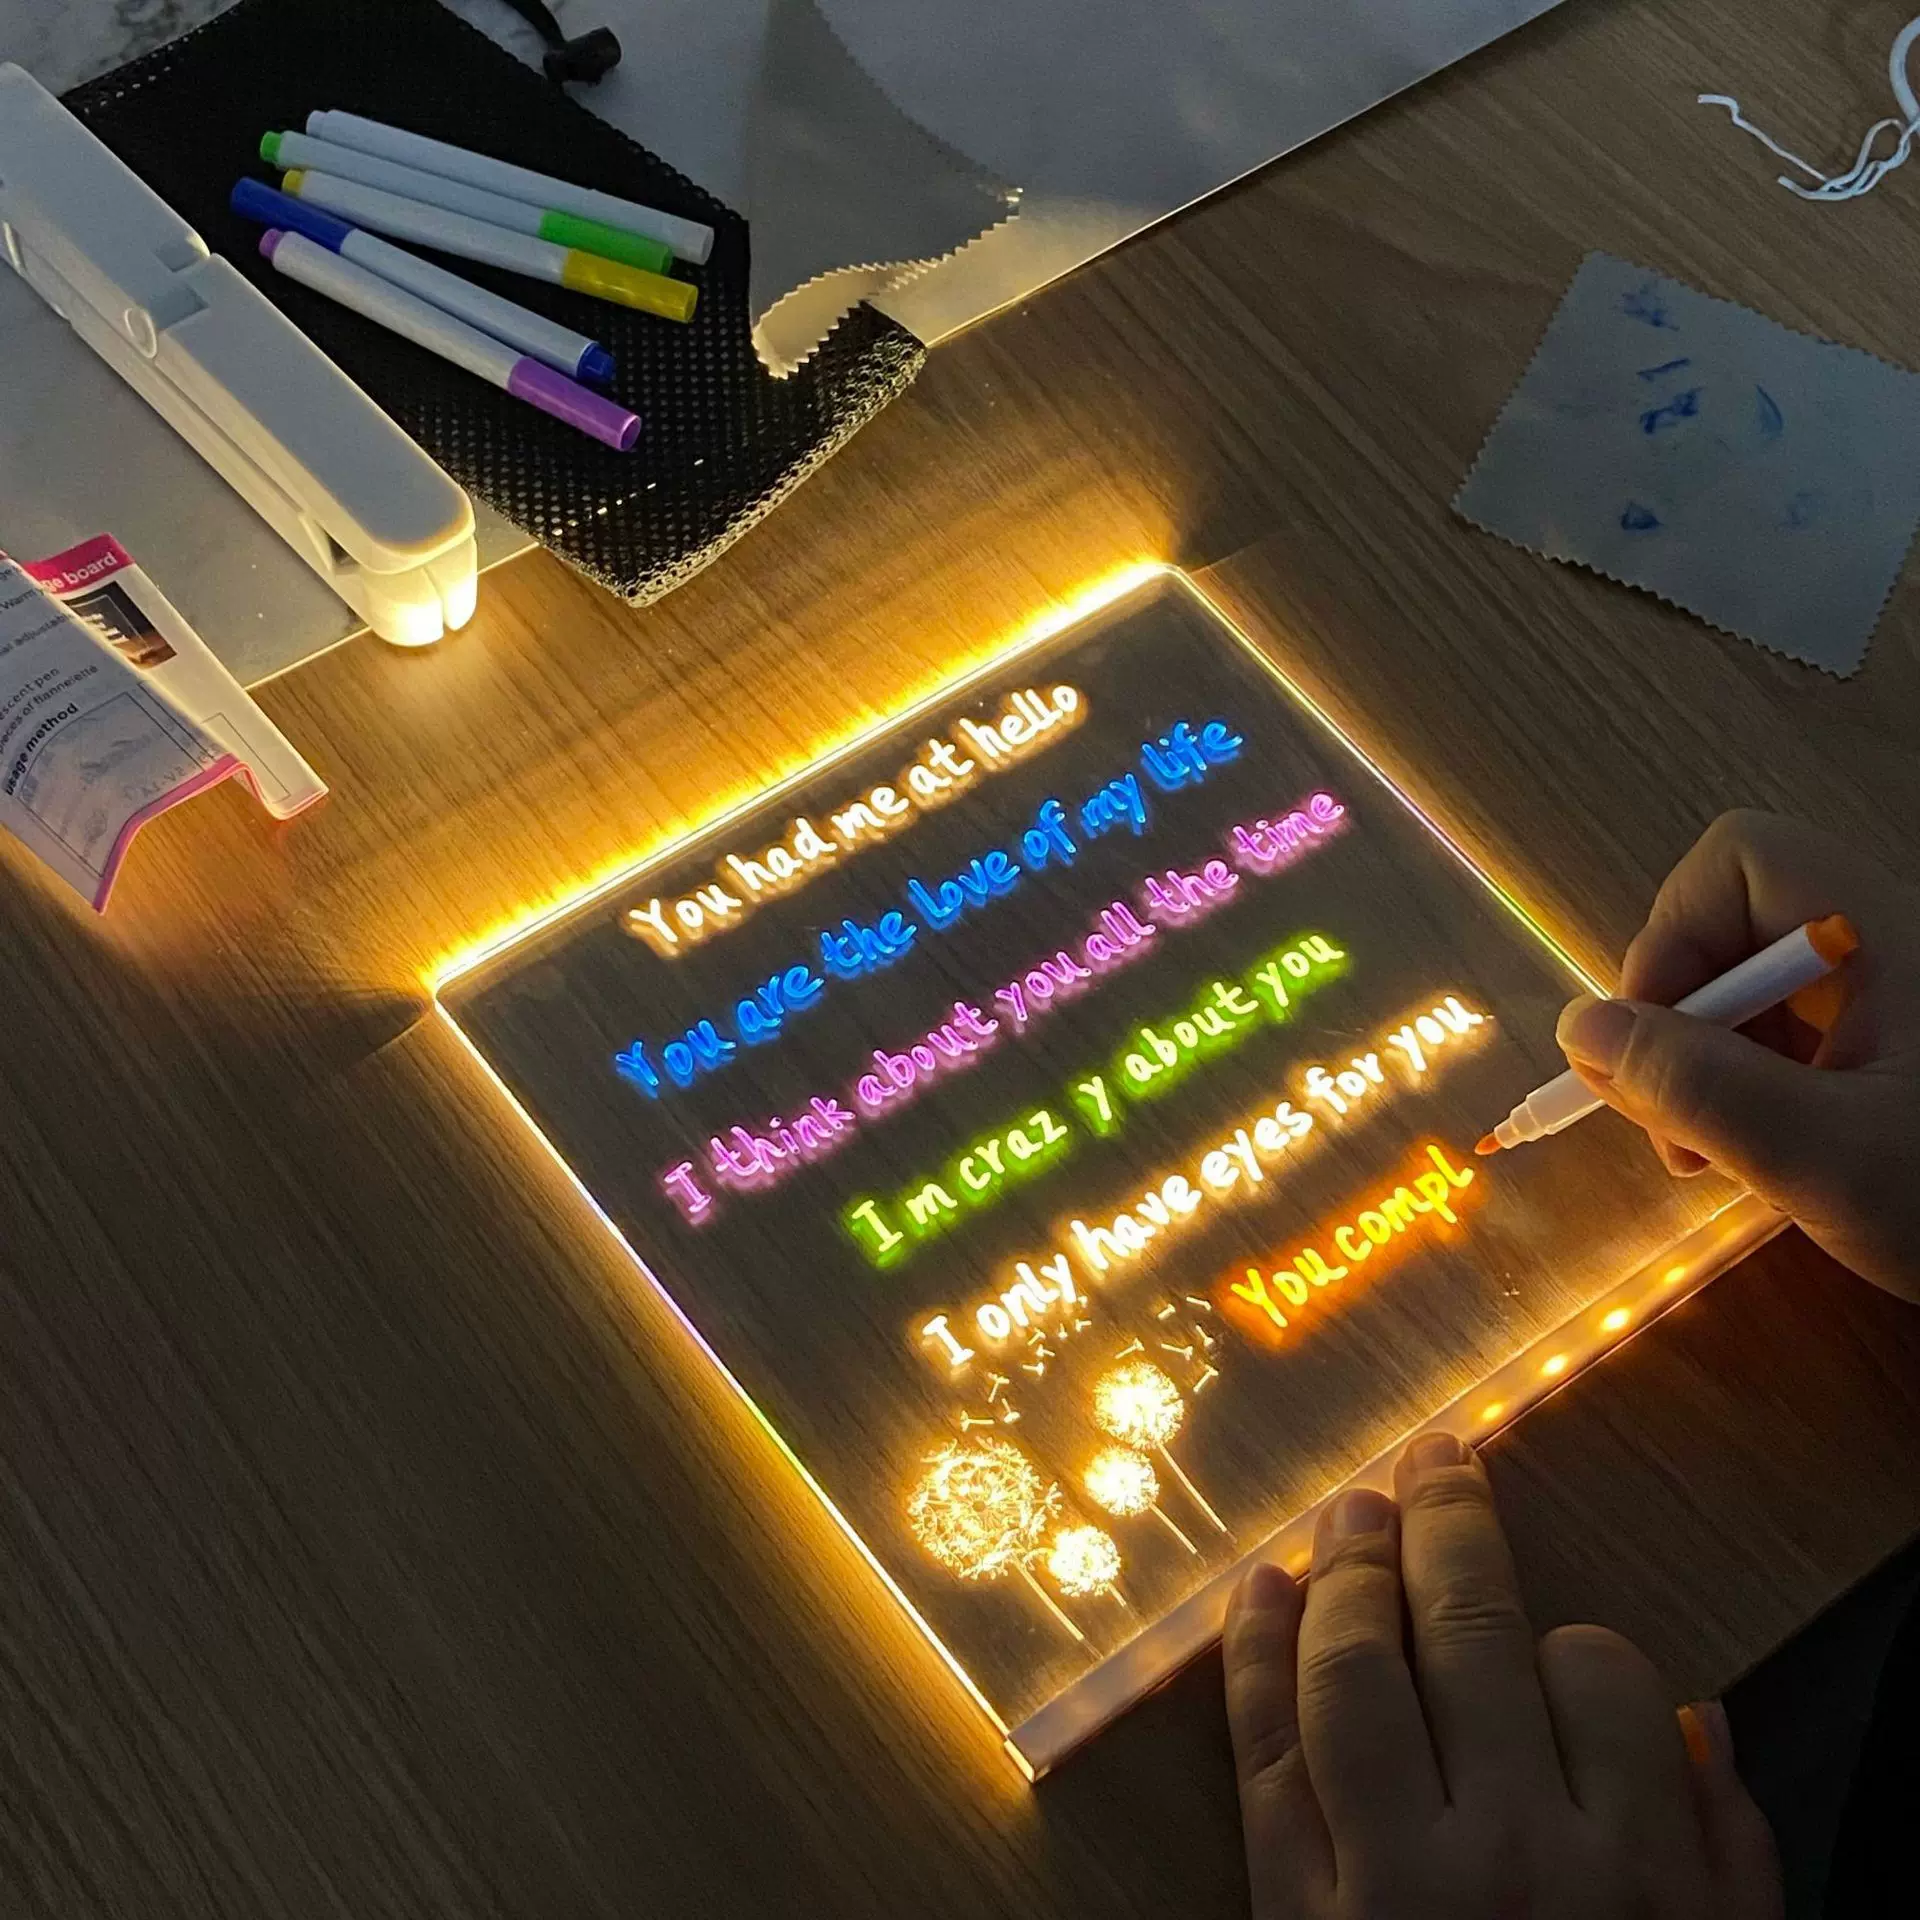 ge board
Warm
al adjustab
escent pen
pieces of flannelette
usage method
You had me at hello
You are the love of my life
I think about you all the time
I m craz y about you
I only have eyes for you
You compl